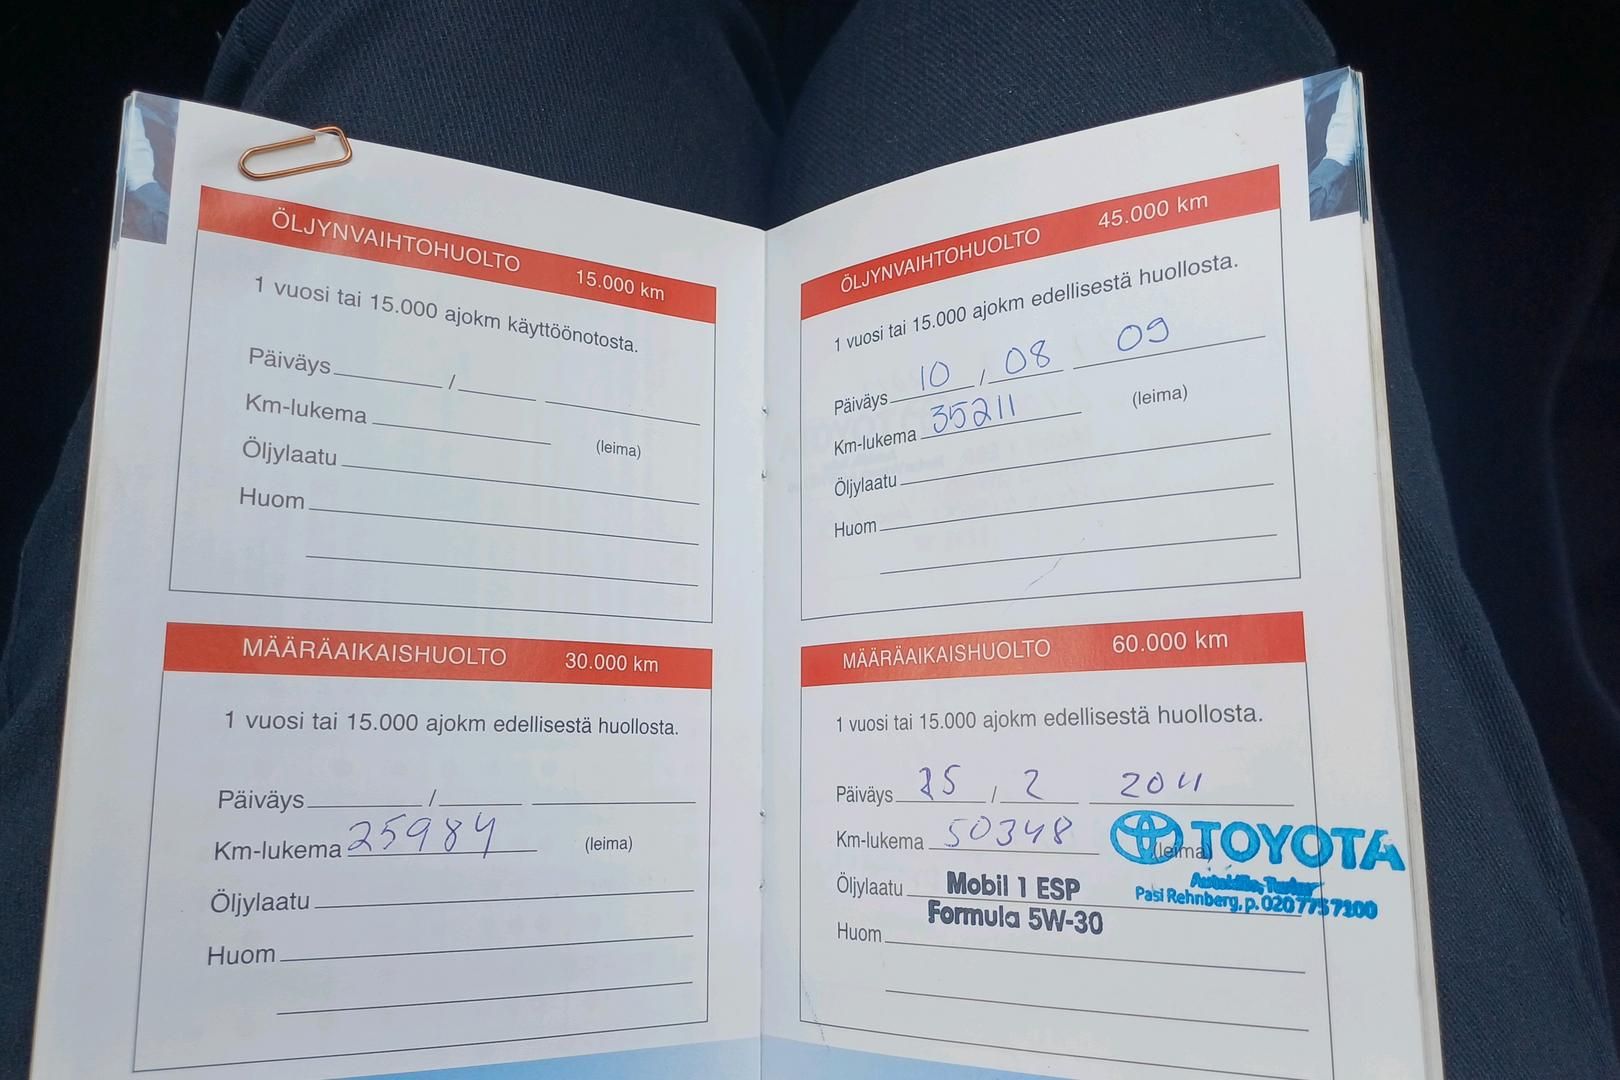 ÖLJYNVAIHTOHUOLTO 15.000 km
1 vuosi tai 15.000 ajokm käyttöönotosta.
Päiväys /
Km-lukema (leima)
Öljylaatu
Huom
MÄÄRÄAIKAISHUOLTO 30.000 km
1 vuosi tai 15.000 ajokm edellisestä huollosta.
Päiväys /
Km-lukema 25984 (leima)
Öljylaatu
Huom
ÖLJYNVAIHTOHUOLTO 45.000 km
1 vuosi tai 15.000 ajokm edellisestä huollosta.
Päiväys 10 / 08 09
Km-lukema 35211 (leima)
Öljylaatu
Huom
MÄÄRÄAIKAISHUOLTO 60.000 km
1 vuosi tai 15.000 ajokm edellisestä huollosta.
Päiväys 25 / 2 2011
Km-lukema 50348 (leima) TOYOTA
Öljylaatu Mobil 1 ESP
Pasi Rehnberg, p. 020 775 7100
Formula 5W-30
Huom